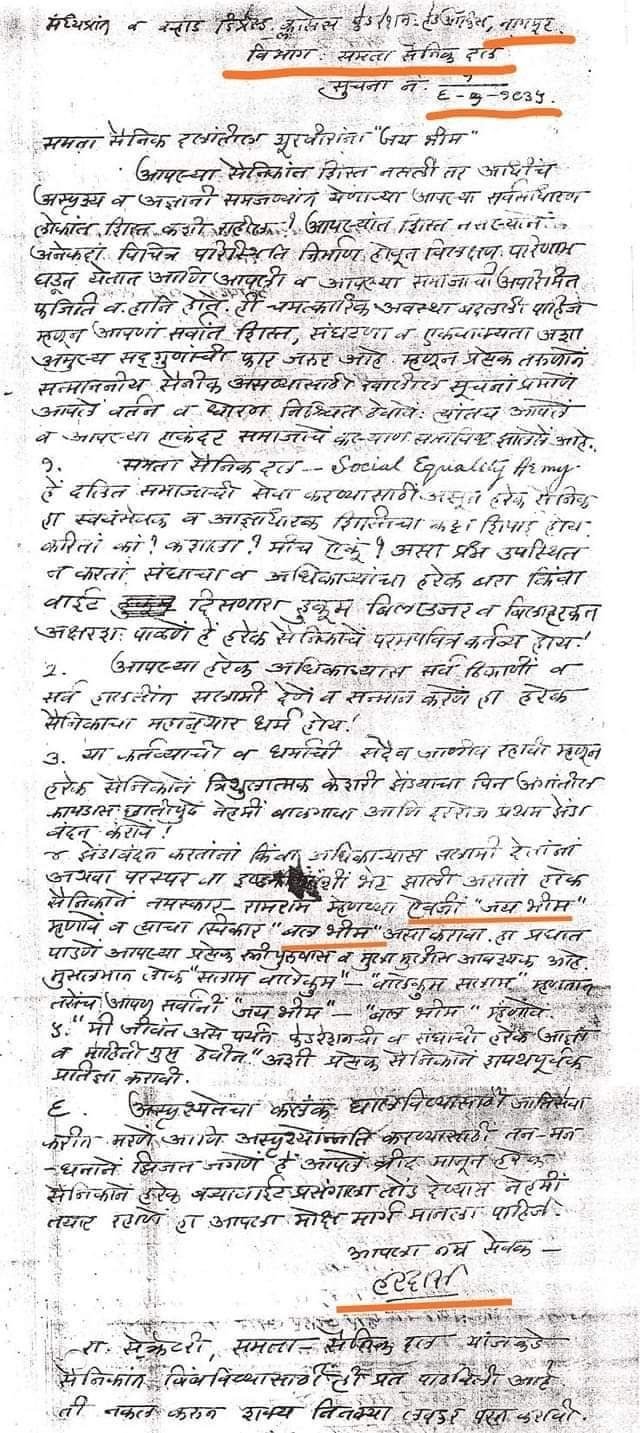 मध्यप्रांत व वऱ्हाड डिप्रेस्ड क्लासेस फेडरेशन. हेड ऑफिस, नागपूर.
विभाग: समता सैनिक दल
सुचना नं. १
६-७-१९३५.
समता सैनिक दलांतील शूरवीरांना "जय भीम"
आपल्या सैनिकांत शिस्त नसली तर आधीच
अस्पृश्य व अज्ञानी समजण्यांत येणाऱ्या आपल्या सर्वसाधारण
लोकांत शिस्त कशी राहील? आपल्यांत शिस्त नसल्यानं
अनेकदां विचित्र परिस्थिति निर्माण होवून विलक्षण परिणाम
घडून येतात आणि आपली व आपल्या समाजाची अपरिमित
फजिति व हानि होते. ही चमत्कारिक अवस्था बदलली पाहिजे
म्हणून आपणां सर्वांत शिस्त, संघटणा व एकवाक्यता अशा
अमुल्य सद्गुणांची फार जरूर आहे. म्हणून प्रत्येक तरुणानें
सन्माननीय सैनीक असण्यासाठी खालील सूचनां प्रमाणें
आपलें वर्तन व धोरण निश्चित ठेवावे. त्यांतच आपलें
व आपल्या एकंदर समाजाचें कल्याण समाविष्ट झालेलें आहे.
१. समता सैनिक दल -- Social Equality Army
हें दलित समाजाची सेवा करण्यासाठीं असून हरेक सैनिक
हा स्वयंसेवक व आज्ञाधारक शिस्तीचा कट्टा शिपाई होय.
करितां कां? कशाला? मीच ऐकूं? असा प्रश्न उपस्थित
न करतां संघाचा व अधिकाऱ्यांचा हरेक बरा किंवा
वाईट दिसणारा हुकूम बिलाउजर व बिलाहरकत
अक्षरशः पाळणें हें हरेक सैनिकाचें परमपवित्र कर्तव्य होय!
2. आपल्या हरेक अधिकाऱ्यास सर्व ठिकाणीं व
सर्व हालतींत सलामी देणें व सन्मान करणें हा हरेक
सैनिकाचा धर्म होय!
३. या कर्तव्याची व धर्माची सदैव जाणीव रहावी म्हणून
हरेक सैनिकानें त्रिशुलात्मक केशरी झेंड्याचा पिन अंगांतील
कापडास छातीपुढें नेहमीं बाळगावा आणि दररोज प्रथम झेंडा
वंदन करावें!
४ झेंडावंदन करतांनां किंवा अधिकाऱ्यास सलामी देतांनां
अथवा परस्पर वा भेट झाली असतां हरेक
सैनिकानें नमस्कार-रामराम म्हणण्या ऐवजीं "जय भीम"
म्हणावें व त्याचा स्विकार "बल भीम" असा करावा. हा प्रघात
पाडणें आपल्या प्रत्येक स्त्रीपुरुषास व मुला मुलीस आवश्यक आहे.
मुसलमान लोक "सलाम वालेकुम" - "वालेकुम सलाम" म्हणतात
तसेंच आपण सर्वांनी "जय भीम" - "बल भीम" म्हणावे.
५. "मी जीवंत असे पर्यंत फेडरेशनची व संघाची हरेक आज्ञा
व माहिती गुप्त ठेवीन" अशी प्रत्येक सैनिकानें शपथपूर्वक
प्रतिज्ञा करावी.
६. अस्पृश्यतेचा कलंक घालविण्यासाठीं जातिसेवा
करीत मरणें आणि अस्पृश्योन्नति करण्यासाठीं तन-मन
-धनानें झिजत जगणें हें आपलें ब्रीद मानून हरेक
सैनिकानें हरेक बऱ्यावाईट प्रसंगाला तोंड देण्यास नेहमीं
तयार राहणें हा आपला मोक्ष मार्ग मानला पाहिजे.
आपला नम्र सेवक -
हरदास
रा. सेक्रेटरी, समता - सैनिक दल यांजकडे
सैनिकांत बिंबविण्यासाठीं ही प्रत पाठविली आहे
ती नकल करून शक्य तितक्या लवकर परत करावी.